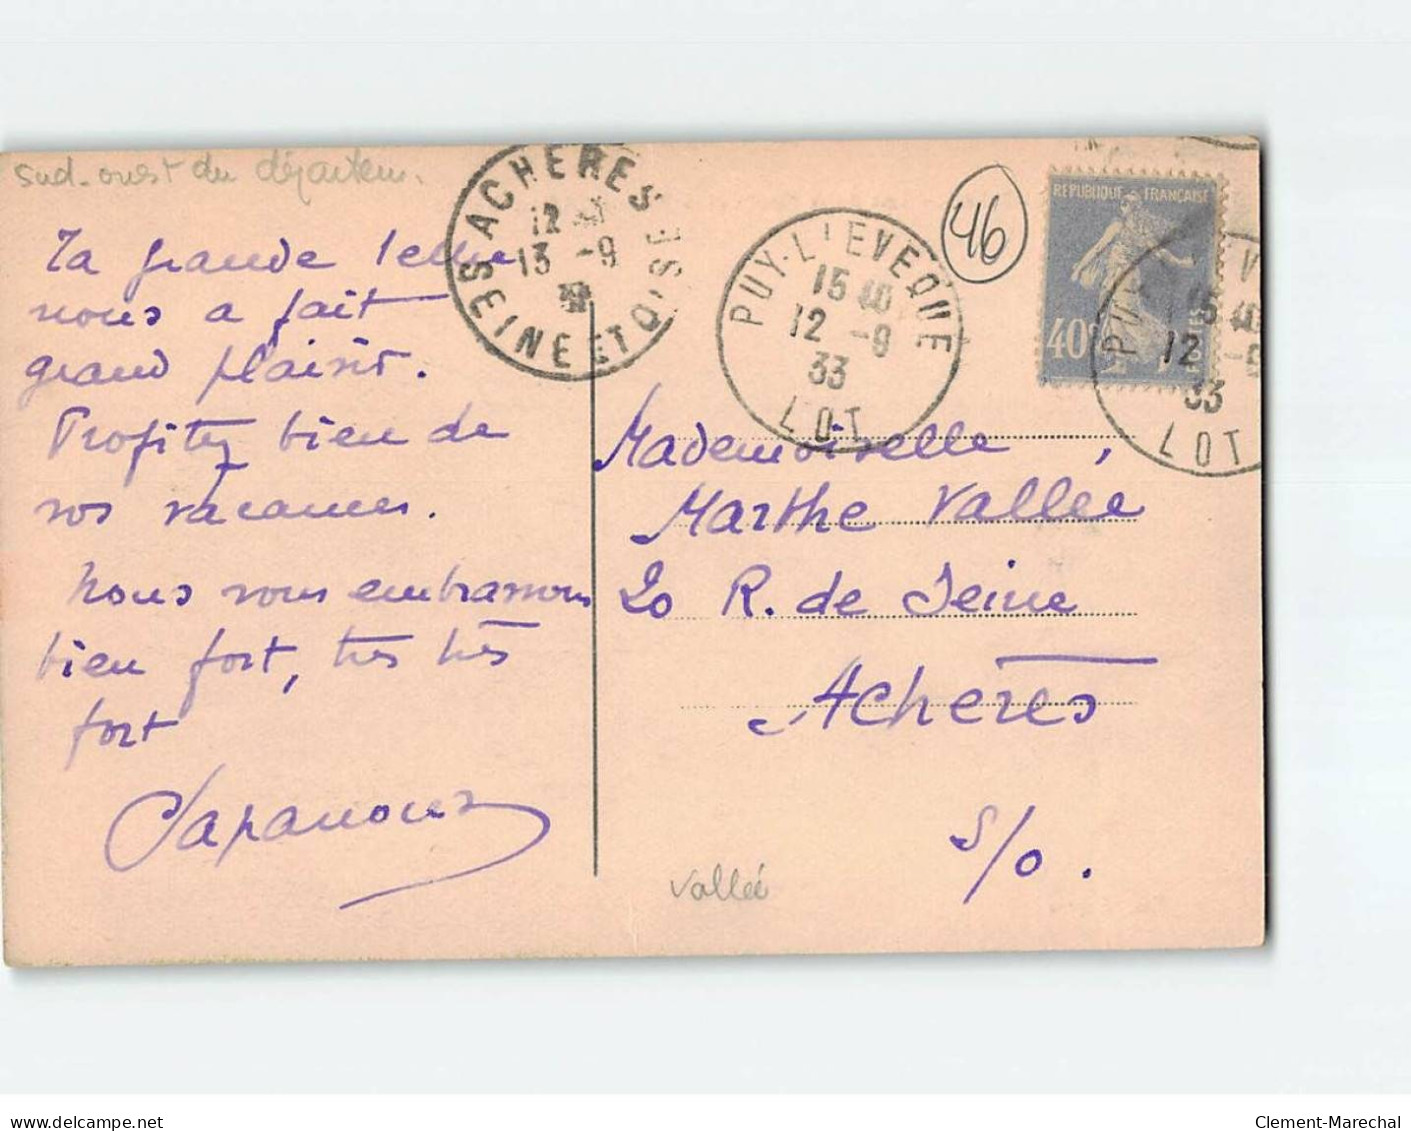 sud-ouest du départem.
Ta grande lettre
nous a fait
grand plaisir.
Profitez bien de
vos vacances.
Nous vous embrassons
bien fort, très très
fort
ACHERES
12
13 -9
SEINE ET OISE
PUY-L'EVEQUE
15 40
12 -9
33
LOT
46
REPUBLIQUE FRANÇAISE
40c
POSTES
15 40
12 -9
33
LOT
Mademoiselle,
Marthe Vallée
20 R. de Seine
Achères
S/O.
Vallée
www.delcampe.net
Clement-Marechal